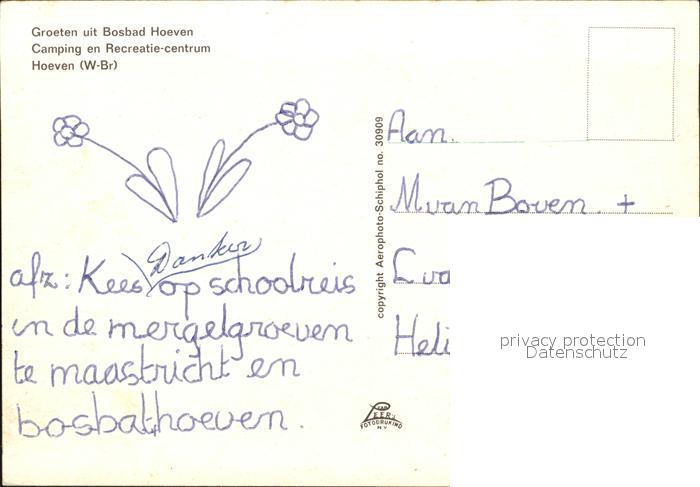 Groeten uit Bosbad Hoeven
Camping en Recreatie-centrum
Hoeven (W-Br)
afz: Kees Danker op schoolreis
in de mergelgroeven
te maastricht en
bosbathoeven.
copyright Aerophoto-Schiphol no. 30909
VAN
LEER'S
FOTODRUKIND
N.V.
Aan.
M van Boven. +
Heli
privacy protection
Datenschutz